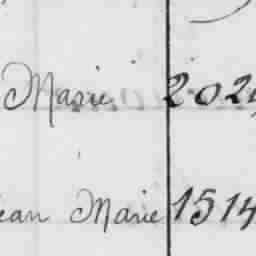 Marie 202
ean Marie 1514